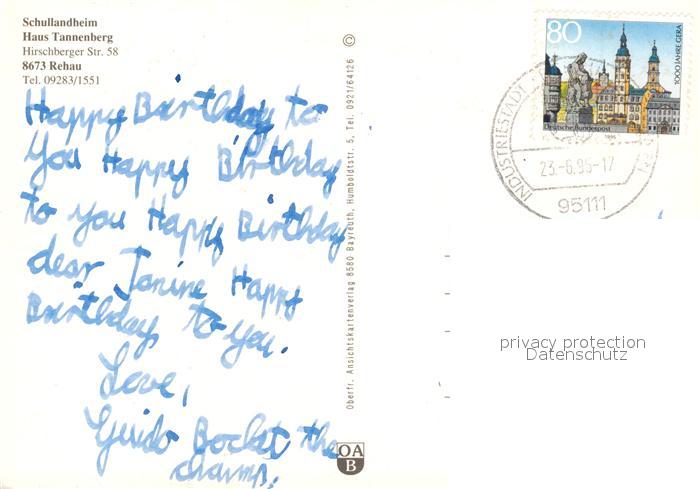 Schullandheim
Haus Tannenberg
Hirschberger Str. 58
8673 Rehau
Tel. 09283/1551
Happy Birthday to
You Happy Birthday
to you Happy Birthday
dear Janine Happy
Birthday to you.
Love,
Guido the
champ.
Oberfr. Ansichtskartenverlag 8580 Bayreuth, Humboldtstr. 5, Tel. 0921/64126
©
OA
B
80
1000 JAHRE GERA
Deutsche Bundespost
1995
INDUSTRIESTADT
23.-6.95-17
95111
privacy protection
Datenschutz